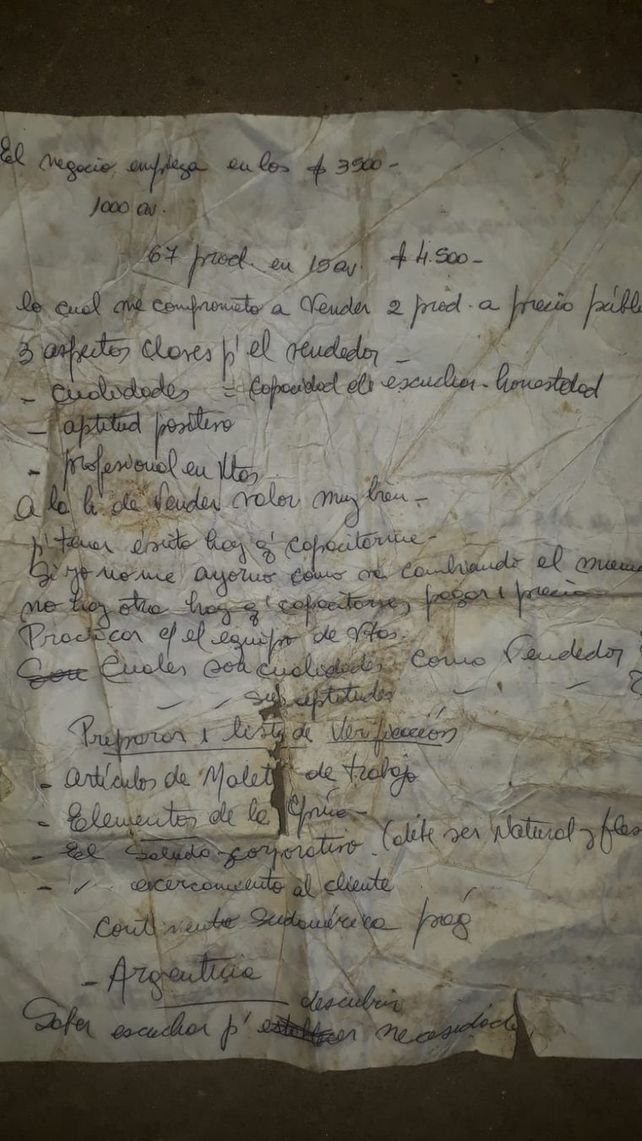 El negocio empieza en los $ 3900-
1000 av.
67 prod. en 15 av. $ 4.500-
lo cual me comprometo a Vender 2 prod. a precio públ
3 aspectos claves p' el vendedor -
- cualidades = capacidad de escuchar - honestidad
- aptitud positivo
- profesional en Vtas
A la h de Vender valor muy bien -
p' tener éxito hay q' capacitarme -
Si yo no me ayorno como va cambiando el
no hay otra hay q' capacitarse, pagar 1 precio
Practicar c/ el equipo de Vtas.
Cuales son cualidades como Vendedor ?
sus aptitudes
Preparar 1 lista de Verificación
- Artículos de Malet de trabajo
- Elementos de la
- El Saludo corporativo. (debe ser Natural y
- " acercamiento al cliente
Continente Sudamérica pág
- Argentina
descubrir
Saber escuchar p' necesidad